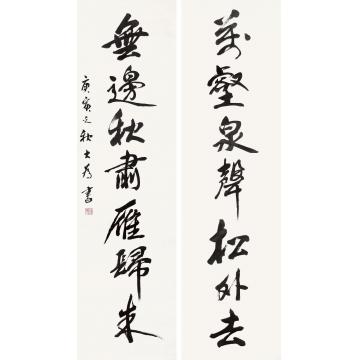 萬壑泉聲松外去
無邊秋肅雁歸來
庚寅之秋大為書